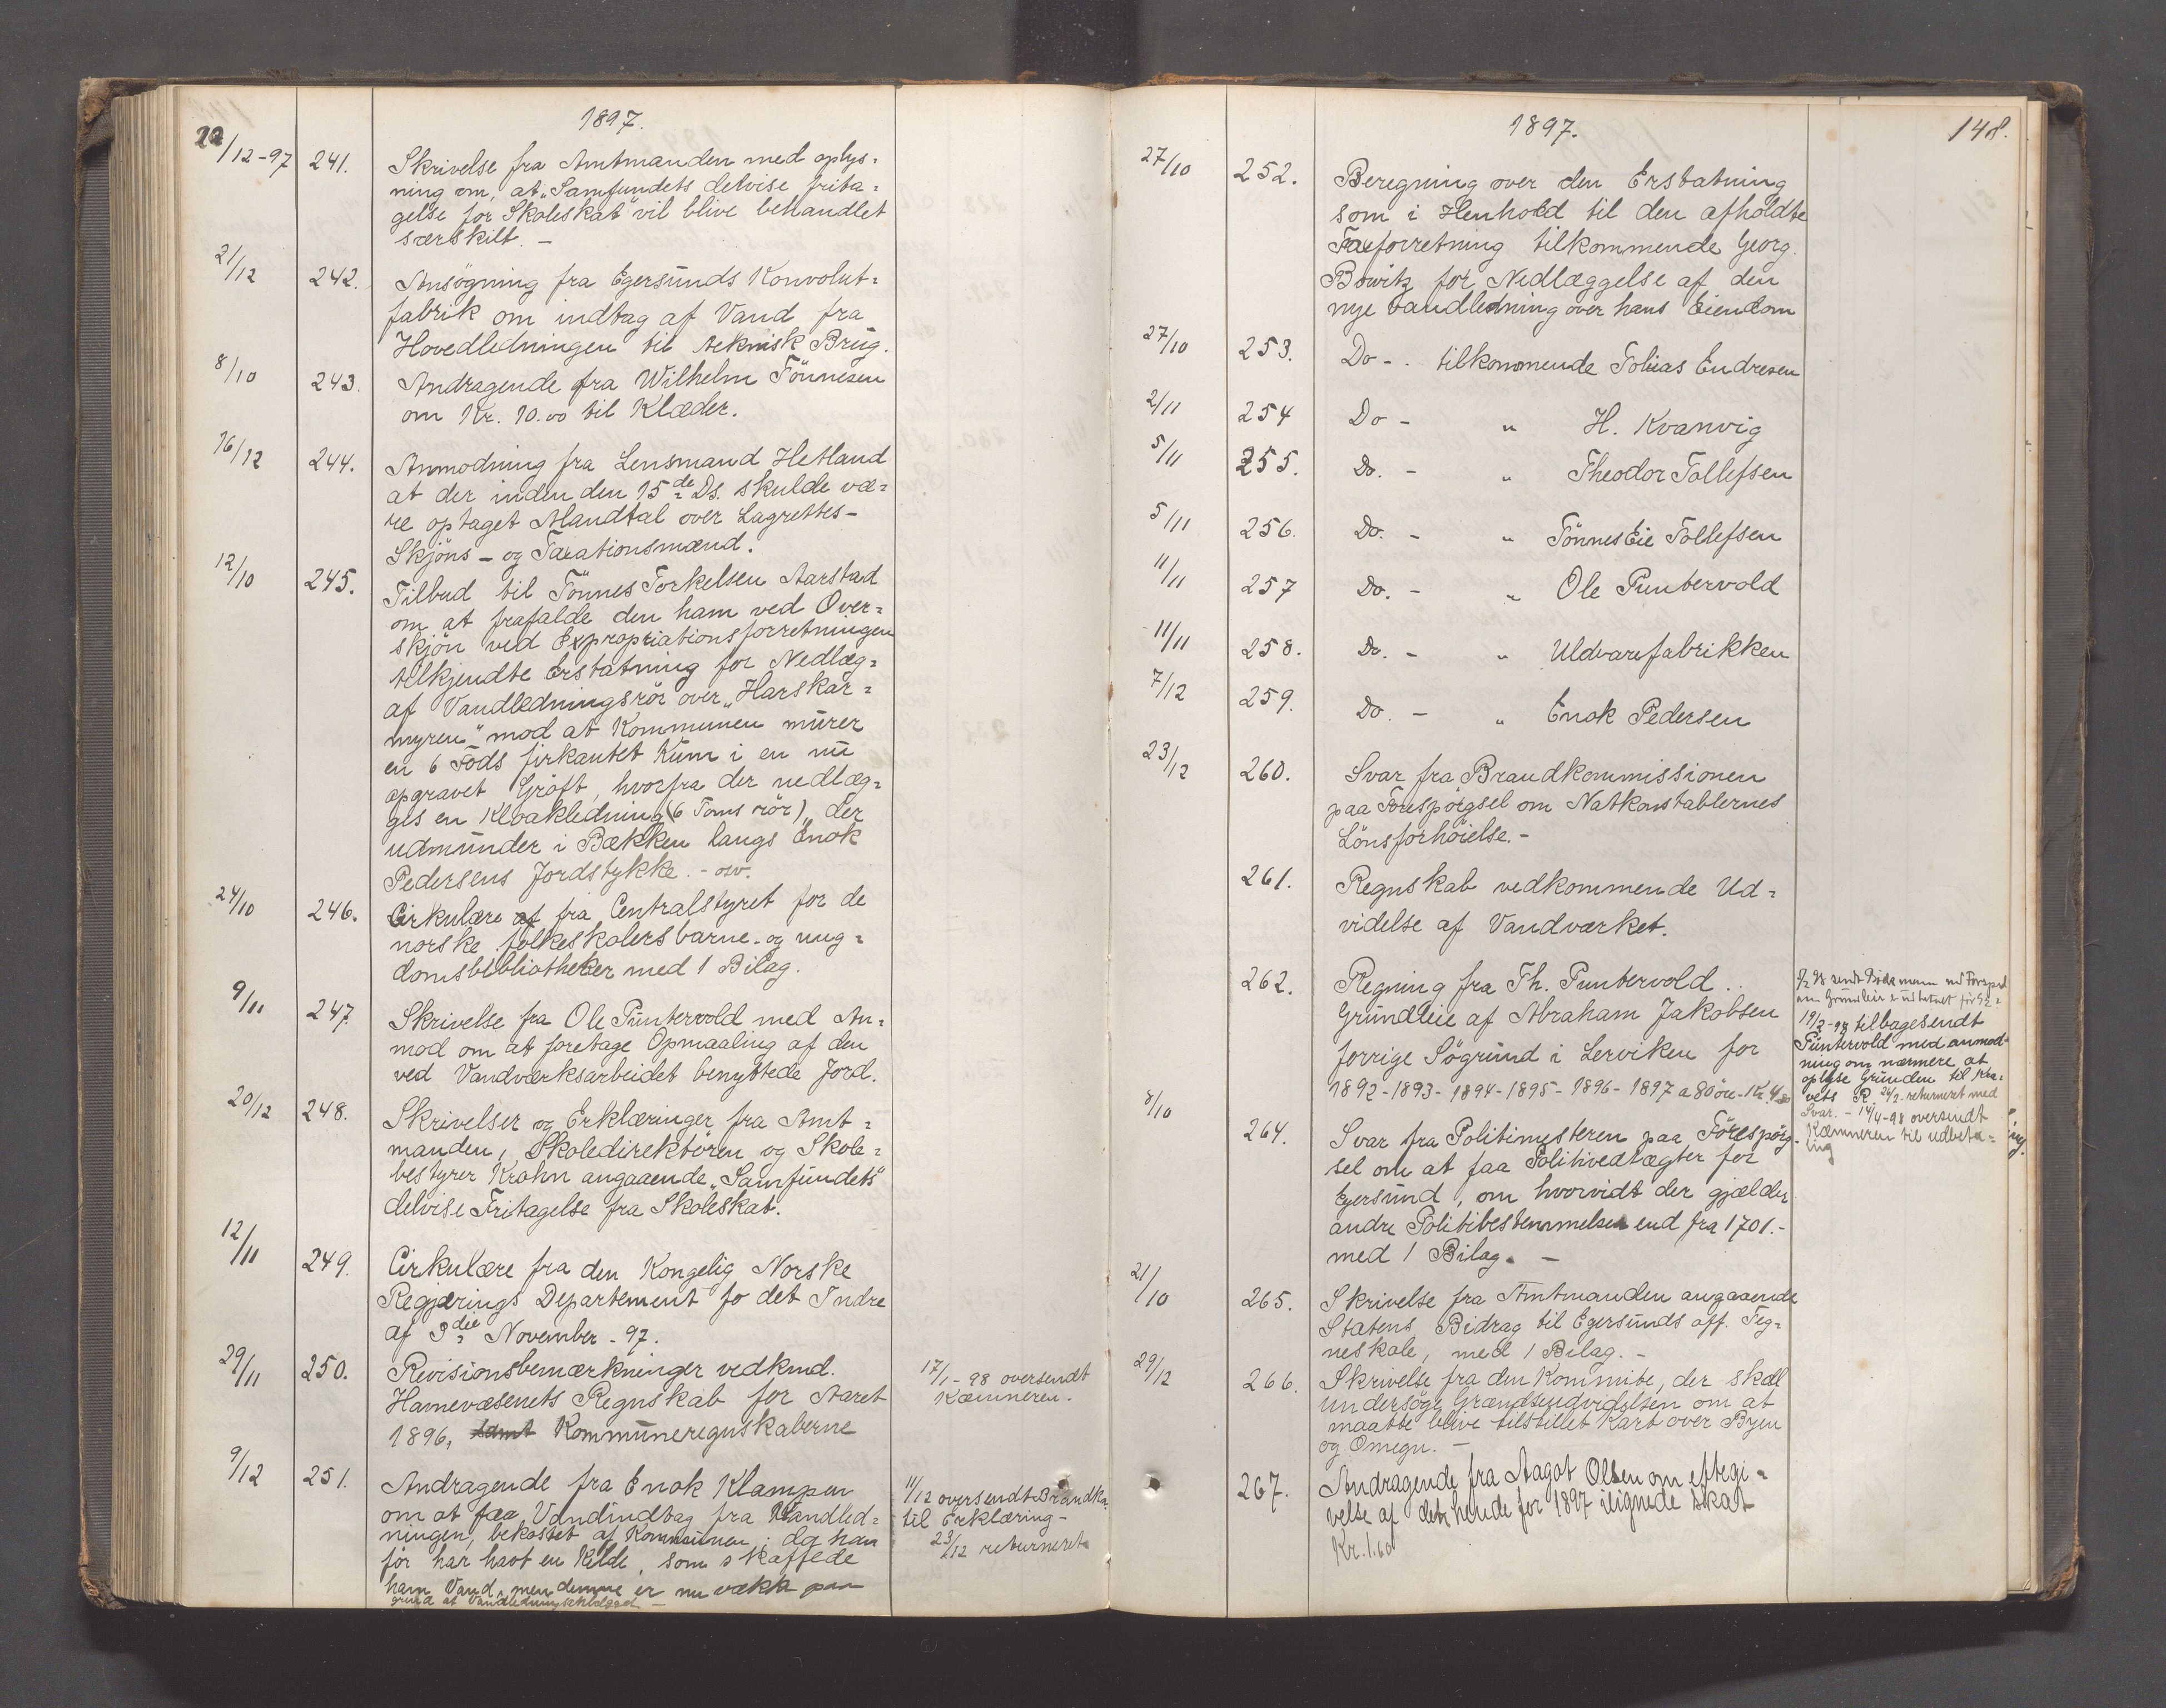 1897.
22/12-97 241. Skrivelse fra Amtmanden med oplys=
ning om, at "Samfundets delvise frita=
gelse for Skoleskat" vil blive behandlet
særskilt. -
21/12 242. Ansögning fra Egersunds Konvolut=
fabrik om indtag af Vand fra
Hovedledningen til teknisk Brug.
8/10 243. Andragende fra Wilhelm Tönnesen
om Kr. 10.00 til Klæder.
16/12 244. Anmodning fra Lensmand Hetland
at der inden den 15de Ds. skulde væ=
re optaget Mandtal over Lagrettes-
Skjöns- og Taxationsmænd.
12/10 245. Tilbud til Tönnes Torkelsen Aarstad
om at frafalde den ham ved Over=
skjön ved Expropriationsforretningen
tilkjendte Erstatning for Nedlæg=
af Vandledningsrör over "Harskar=
myren" mod at Kommunen murer
en 6 Fods firkantet Kum i en nu
opgravet Gröft, hvorfra der nedlæg=
ges en Kloakledning (6 Toms rör), der
udmunder i Bækken langs Enok
Pedersens Jordstykke. - osv.
24/10 246. Cirkulære af fra Centralstyret for de
norske folkeskolers barne- og ung=
domsbibliotheker med 1 Bilag.
9/11 247. Skrivelse fra Ole Puntervold med An=
mod om at foretage Opmaaling af den
ved Vandværksarbeidet benyttede Jord.
20/12 248. Skrivelser og Erklæringer fra Amt=
manden, Skoledirektören og Skole=
bestyrer Krohn angaaende "Samfundets"
delvise Fritagelse fra Skoleskat.
12/11 249. Cirkulære fra den Kongelig Norske
Regjærings Departement fo det Indre
af 3die November - 97.
29/11 250. Revisionsbemærkninger vedkmd.
Havnevæsenets Regnskab for Aaret
1896, samt Kommuneregnskaberne
17/1-98 oversendt
Kæmneren.
9/12 251. Andragende fra Enok Klampen
om at faa Vandindtag fra Vandled=
ningen, bekostet af Kommunen, da han
för har havt en Kilde, som skaffede
ham Vand, men denne er nu vækk paa
grund af
11/12 oversendt Brandko.
til Erklæring -
23/12 returneret
1897.
148.
27/10 252. Beregning over den Erstatning
som i Henhold til den afholdte
Taxforretning tilkommende Georg.
Bowitz for Nedlæggelse af den
nye Vandledning over hans Eiendom
27/10 253. Do -. tilkommende Tobias Endresen
2/11 254 Do - " H. Kvanvig
5/11 255. Do. - " Theodor Tollefsen
5/11 256. Do. - " Tönnes Eie Tollefsen
11/11 257 Do. - " Ole Puntervold
11/11 258. Do. - " Uldvarefabrikken
7/12 259. Do. - " Enok Pedersen
23/12 260. Svar fra Brandkommissionen
paa Forespörgsel om Natkonstablernes
Lönsforhöielse. -
261. Regnskab vedkommende Ud=
videlse af Vandværket.
262. Regning fra Th. Puntervold ..
Grundleie af Abraham Jakobsen
forrige Sögrund i Lerviken for
1892-1893-1894-1895-1896-1897 a 80 öre - Kr. 4.80
sendt
19/2-98 tilbagesendt
Puntervold med anmod-
ning om nærmere at
oplyse Grunden til Kra-
vets R. 26/2 returneret med
Svar. - 14/4-98 oversendt
Kæmneren til udbeta=
ling
8/10 264. Svar fra Politimesteren paa Förespörg-
sel om at faa Politivedtægter for
Egersund, om hvorvidt der gjælder
andre Politibestemmelser end fra 1701. -
med 1 Bilag. -
21/10 265. Skrivelse fra Amtmanden angaaende
Statens Bidrag til Egersunds aff. Teg=
neskole, med 1 Bilag. -
29/12 266. Skrivelse fra den Kommite, der skal
undersöge Grændseudvidelsen om at
maatte blive tilstillet Kart over Byen
og Omegn. -
267. Andragende fra Aagot Olsen om eftegi=
velse af det hende for 1897 ilignede Skat
Kr. 1.60